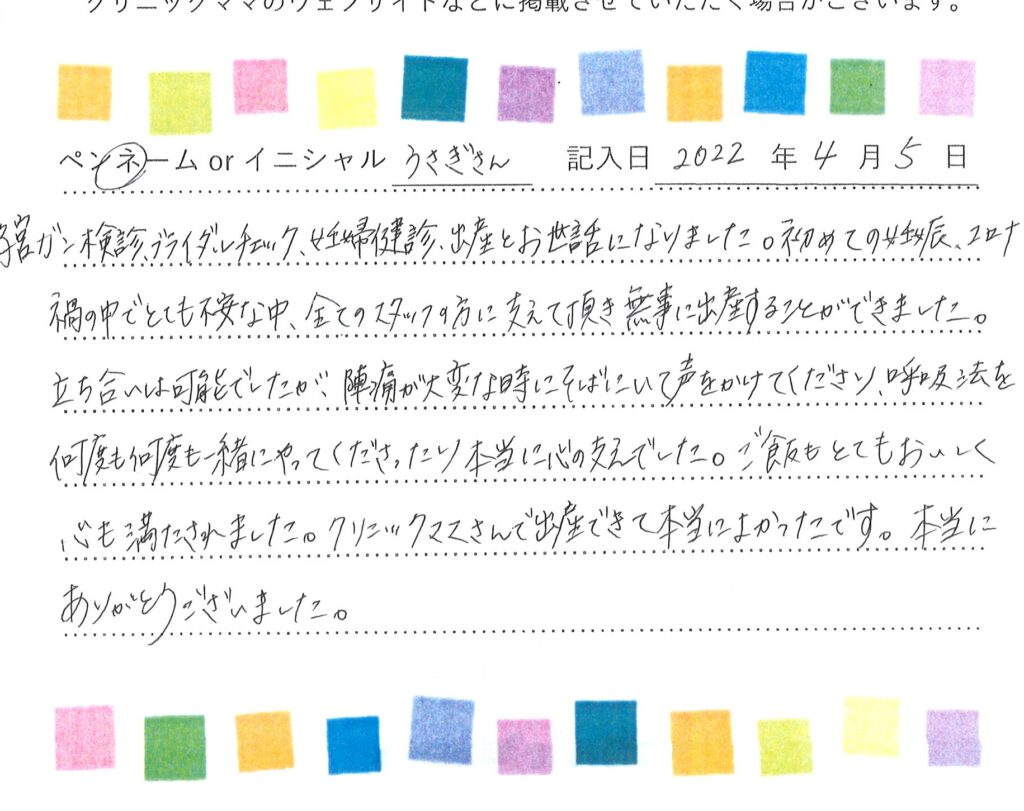 クリニックママのウェブサイトなどに掲載させていただく場合がございます。
ペンネーム or イニシャル うさぎさん 記入日 2022 年 4 月 5 日
子宮ガン検診、ブライダルチェック、妊婦健診、出産とお世話になりました。初めての妊娠、コロナ
禍の中でとても不安な中、全てのスタッフの方に支えて頂き無事に出産することができました。
立ち合いは可能でしたが、陣痛が大変な時にそばにいて声をかけてくださり、呼吸法を
何度も何度も一緒にやってくださったり本当に心の支えでした。ご飯もとてもおいしく
心も満たされました。クリニックママさんで出産できて本当によかったです。本当に
ありがとうございました。